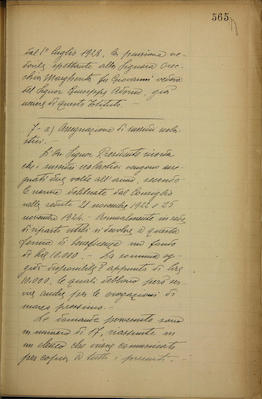 565
dal 1° luglio 1928, la pensione no-
tevole spettante alla Signora
Margherita fu Giovanni vedova
del Signor Giuseppe Adorni, già
di questo Istituto.
7 - a) Assegnazione di sussidi scola-
stici.
Il Signor Presidente ricorda
che i sussidi scolastici vengono
due volte all'anno, secondo
le norme deliberate dal Consiglio
nelle sedute 21 novembre 1922 e 25
novembre 1924. - Annualmente in sede
di riparto utili si devolve a questa
forma di beneficenza un fondo
di Lit. 10.000. - La somma og-
gi disponibile è appunto di Lire
10.000, le quali debbono però ser-
vire anche per le erogazioni di
marzo prossimo. -
Le domande pervenute sono
in numero di 17, riassunte in
un elenco che viene comunicato
per copia a tutti i presenti. -